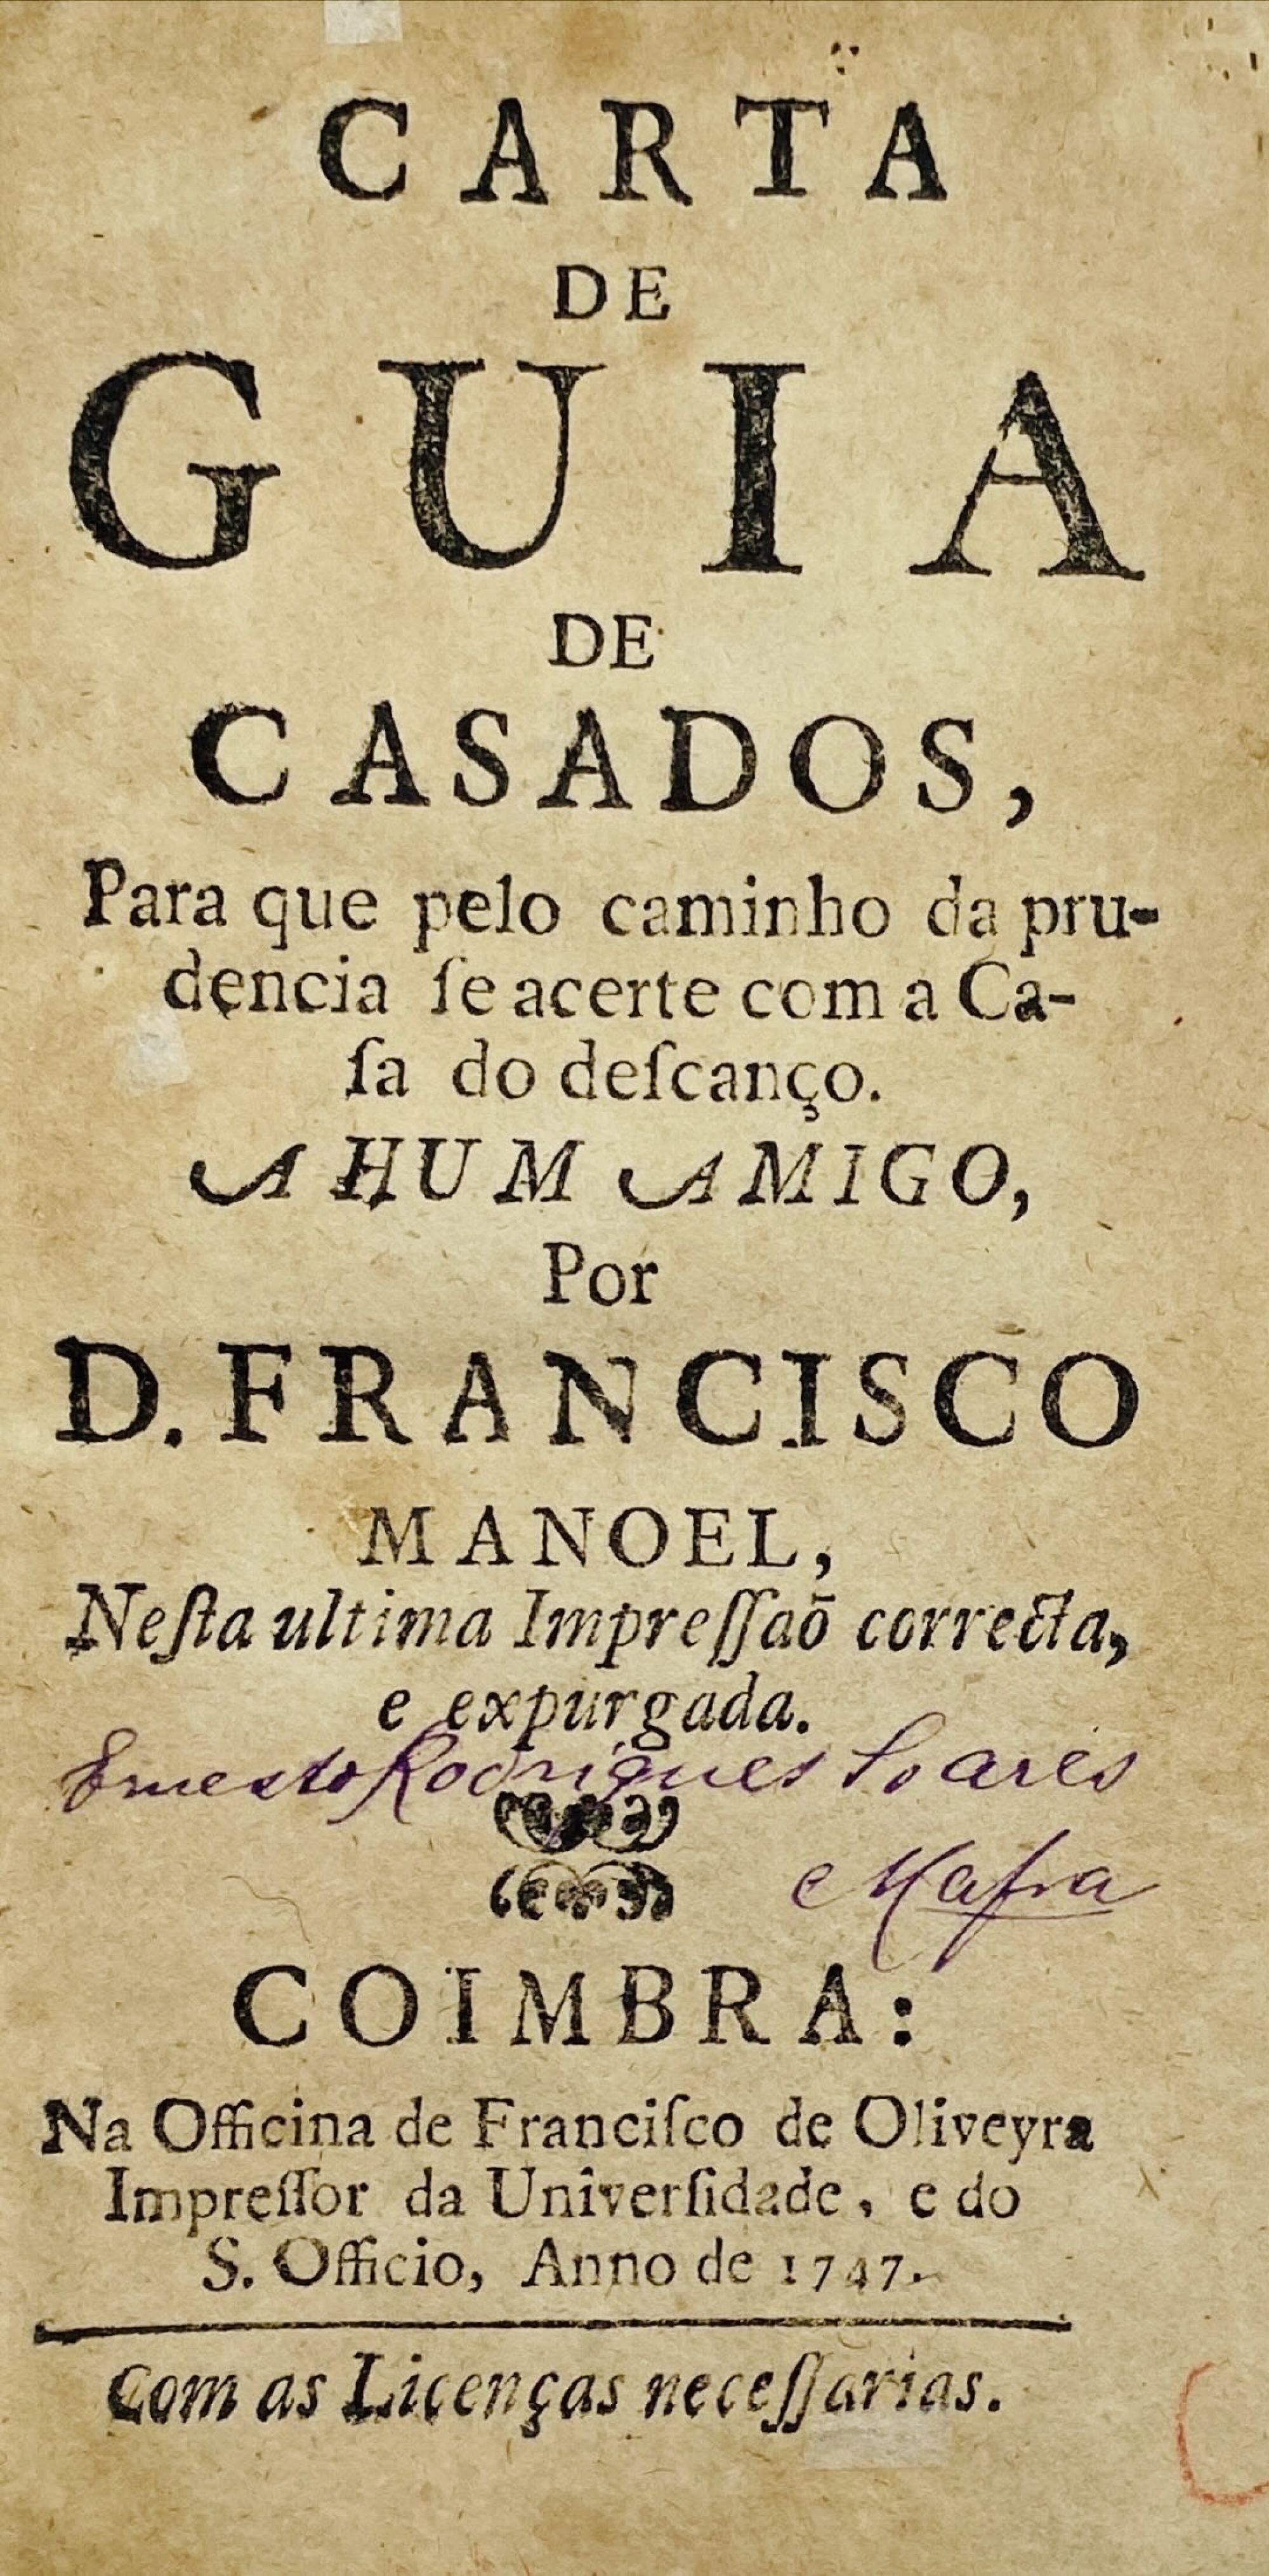 CARTA
DE
GUIA
DE
CASADOS,
Para que pelo caminho da pru-
dencia ſe acerte com a Ca-
ſa do deſcanço.
A HUM AMIGO,
Por
D. FRANCISCO
MANOEL,
Neſta ultima Impreſſaõ correcta,
e expurgada.
Ernesto Rodrigues Soares
Mafra
COIMBRA:
Na Officina de Franciſco de Oliveyra
Impreſſor da Univerſidade, e do
S. Officio, Anno de 1747.
Com as Licenças neceſſarias.